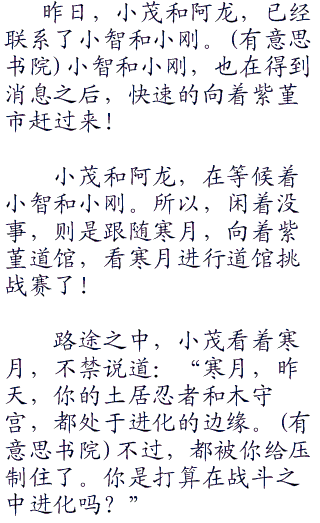 昨日，小茂和阿龙，已经
联系了小智和小刚。(有意思
书院)小智和小刚，也在得到
消息之后，快速的向着紫堇
市赶过来！
小茂和阿龙，在等候着
小智和小刚。所以，闲着没
事，则是跟随寒月，向着紫
堇道馆，看寒月进行道馆挑
战赛了！
路途之中，小茂看着寒
月，不禁说道：“寒月，昨
天，你的土居忍者和木守
宫，都处于进化的边缘。(有
意思书院)不过，都被你给压
制住了。你是打算在战斗之
中进化吗？”